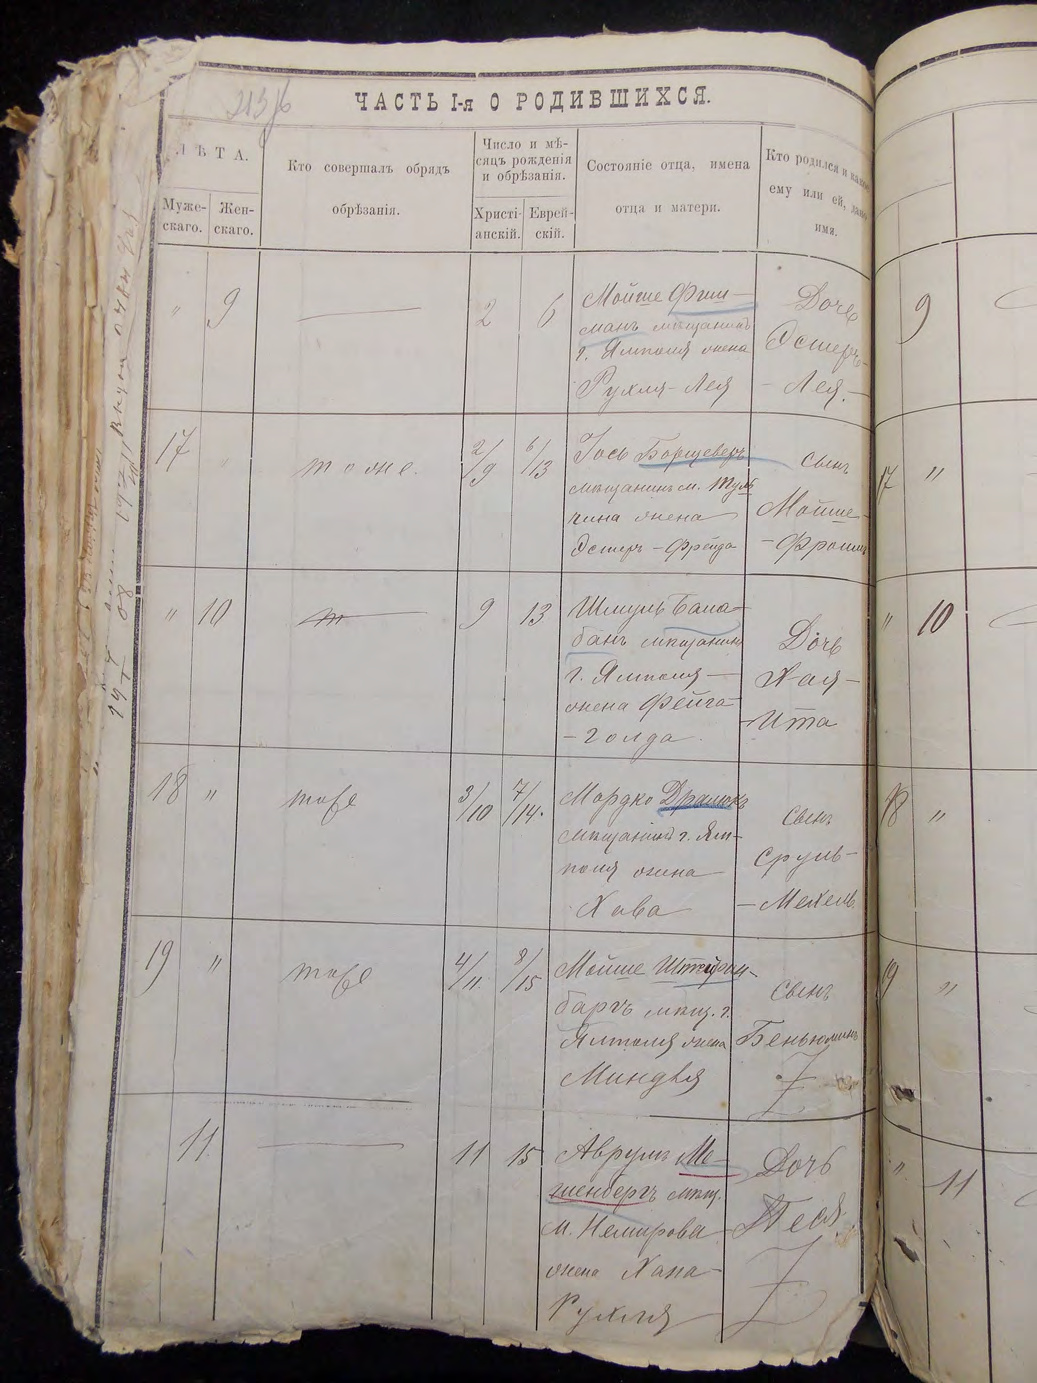 213
ЧАСТЬ I-я О РОДИВШИХСЯ.
ЛѢТА.
Муже-
скаго.
Жен-
скаго.
Кто совершалъ обрядъ
обрѣзанія.
Число и мѣ-
сяцъ рожденія
и обрѣзанія.
Христі-
анскій.
Еврей-
скій.
Состояніе отца, имена
отца и матери.
Кто родился и какое
ему или ей, дано
имя.
" 9 2 6
Мойше Фиш-
манъ мѣщанинъ
г. Ямполя жена
Рухля-Лея
Дочь
Эстеръ-
-Лея.-
17 " тоже. 2/9 6/13
Іось Борщеверъ
мѣщанинъ м. Туль
чина жена
Эстеръ-Фрейда
сынъ
Мойше-
-Фроимъ
" 10 9 13
Шмуль Бала-
банъ мѣщанинъ
г. Ямполя
жена Фейга-
-Голда
Дочь
Хая-
-Ита
18 " тоже 3/10 7/14.
Мордко
мѣщанинъ г. Ям-
поля жена
Хава
сынъ
Сруль-
-Мехель
19 " тоже 4/11 8/15
Мойше
баргъ мѣщ. г.
Ямполя жена
Миндля
сынъ
Беньюминъ
11. 11 15
Аврумъ
шенбергъ мѣщ.
м. Немирова
жена Хана-
Рухля
Дочь
Песя.
9
17 "
" 10
18 "
19 "
" 11